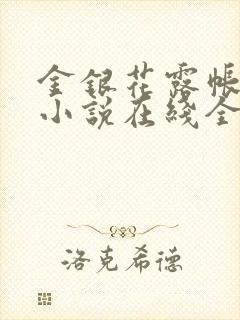 金銀花露帳
小說在綫全
洛克希德